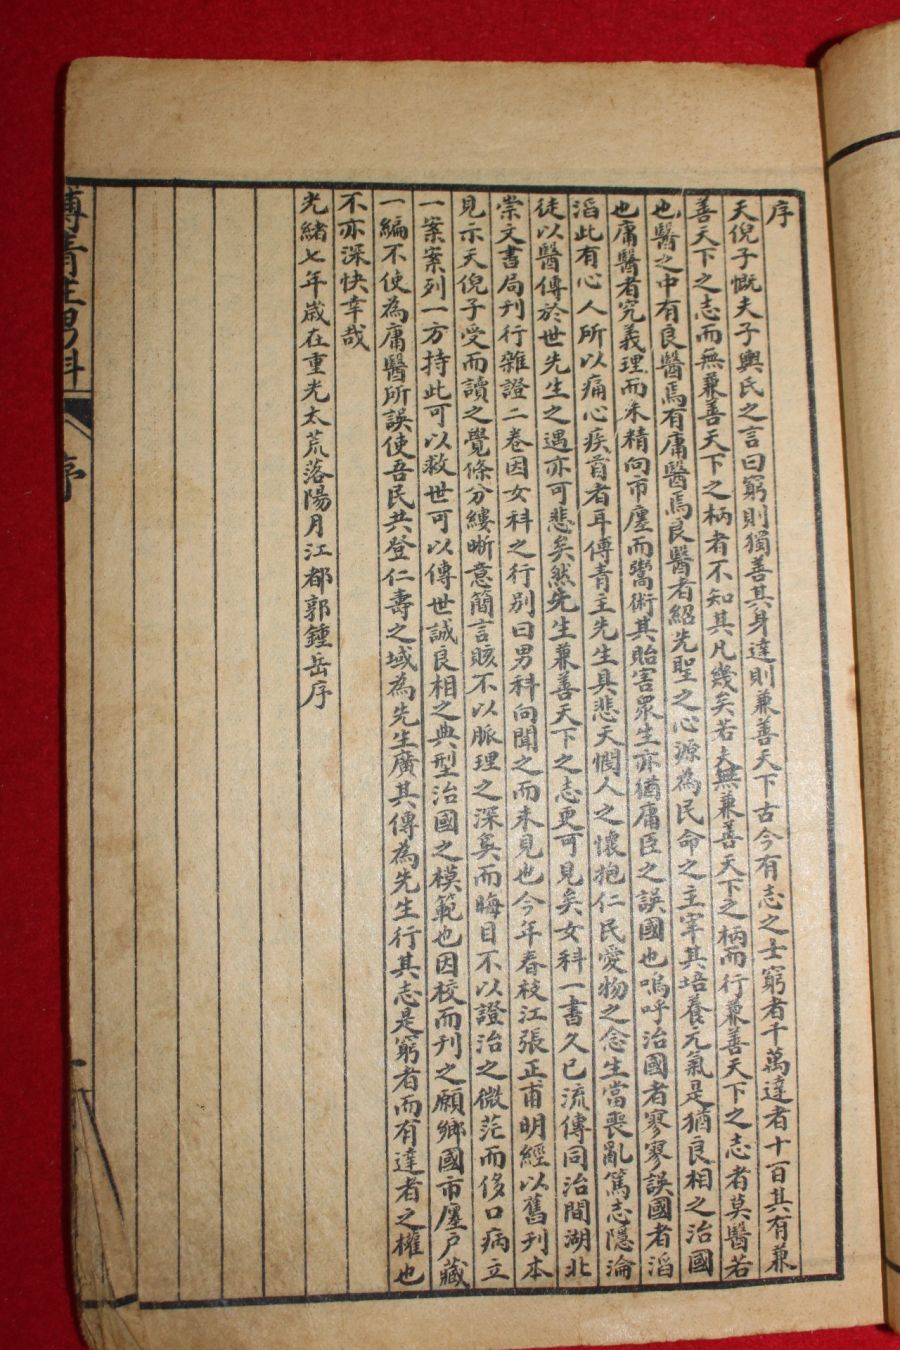 序
天倪子慨夫子輿氏之言曰窮則獨善其身達則兼善天下古今有志之士窮者千萬達者十百其有兼
善天下之志而無兼善天下之柄者不知其凡幾矣若夫無兼善天下之柄而行兼善天下之志者莫醫若
也醫之中有良醫焉有庸醫焉良醫者紹先聖之心源為民命之主宰其培養元氣是猶良相之治國
也庸醫者究義理而未精向市廛而鬻術其貽害眾生亦猶庸臣之誤國也嗚呼治國者寥寥誤國者滔
滔此有心人所以痛心疾首者耳傅青主先生具悲天憫人之懷抱仁民愛物之念生當喪亂篤志隱淪
徒以醫傳於世先生之遇亦可悲矣然先生兼善天下之志更可見矣女科一書久已流傳同治間湖北
崇文書局刊行雜證二卷因女科之行別曰男科向聞之而未見也今年春枝江張正甫明經以舊刊本
見示天倪子受而讀之覺條分縷晰意簡言賅不以脈理之深奧而晦目不以證治之微茫而侈口病立
一案案列一方持此可以救世可以傳世誠良相之典型治國之模範也因校而刊之願鄉國市廛戶藏
一編不使為庸醫所誤使吾民共登仁壽之域為先生廣其傳為先生行其志是窮者而有達者之權也
不亦深快幸哉
光緒七年歲在重光太荒落陽月江都郭鍾岳序
傅青主男科
序
一